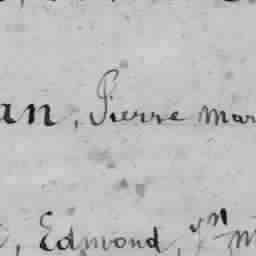 an, Pierre Mar
, Edmond, yn M